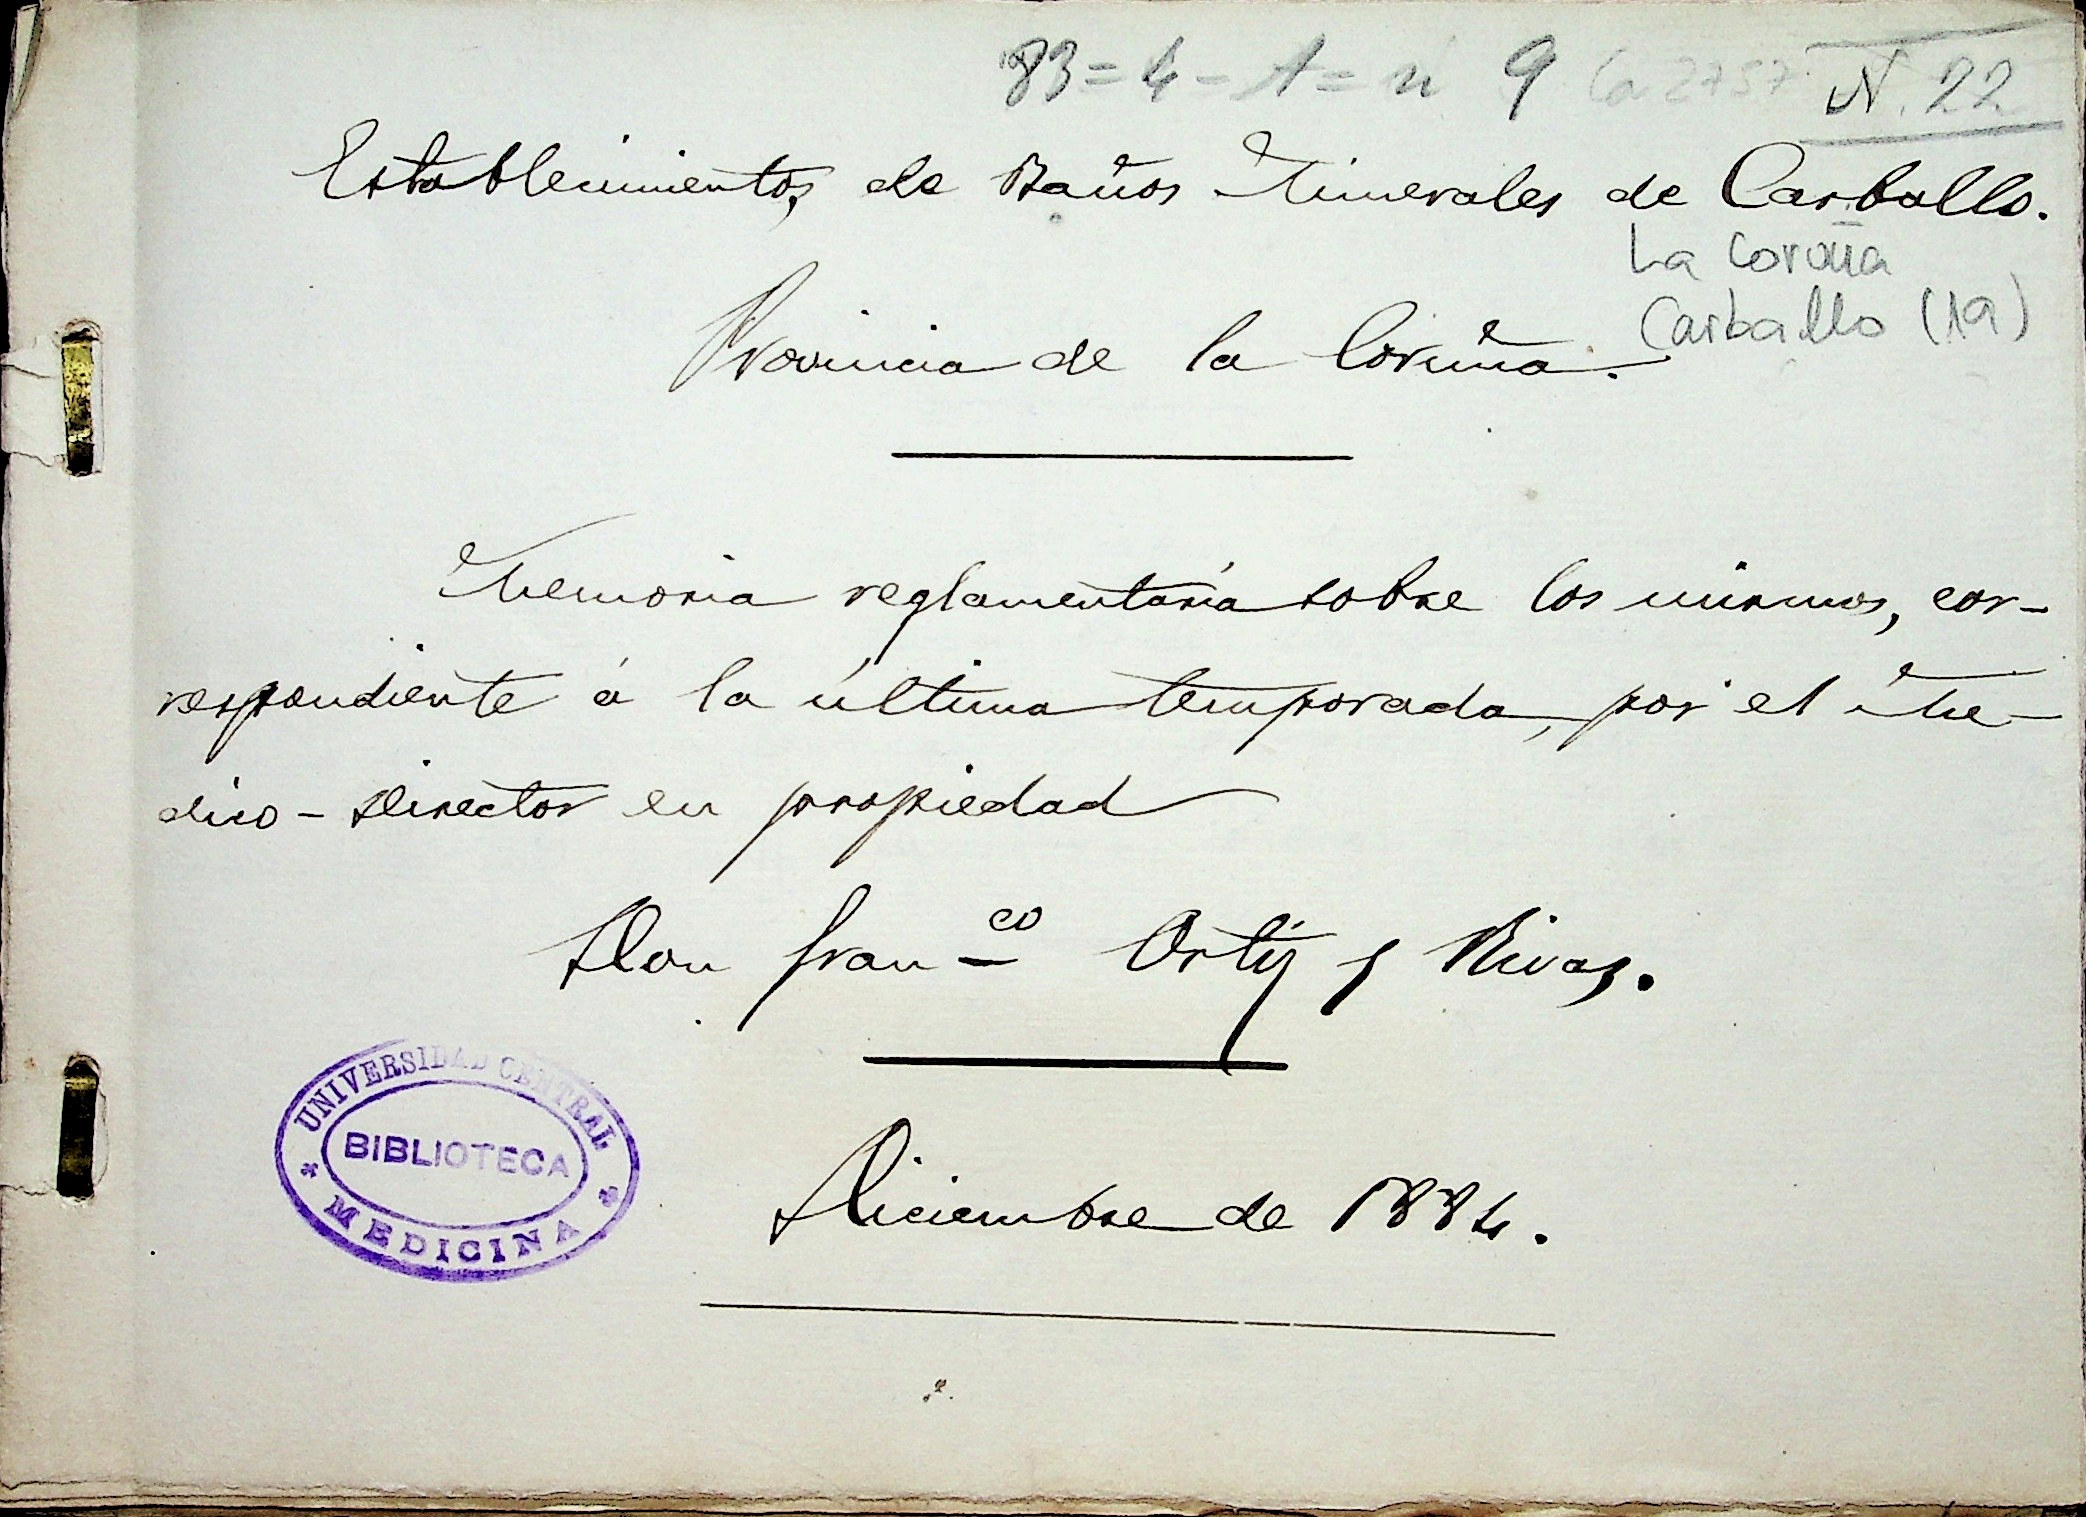 83=4-A=n 9 Ca 2757 N. 22
Establecimientos de Baños Minerales de Carballo.
La Coruña
Carballo (19)
Provincia de la Coruña.
Memoria reglamentaria sobre los mismos, cor-
respondiente á la última temporada, por el Me-
dico-Director en propiedad
Don Fran co Ortíz y Rivas.
UNIVERSIDAD CENTRAL
BIBLIOTECA
MEDICINA
Diciembre de 1884.